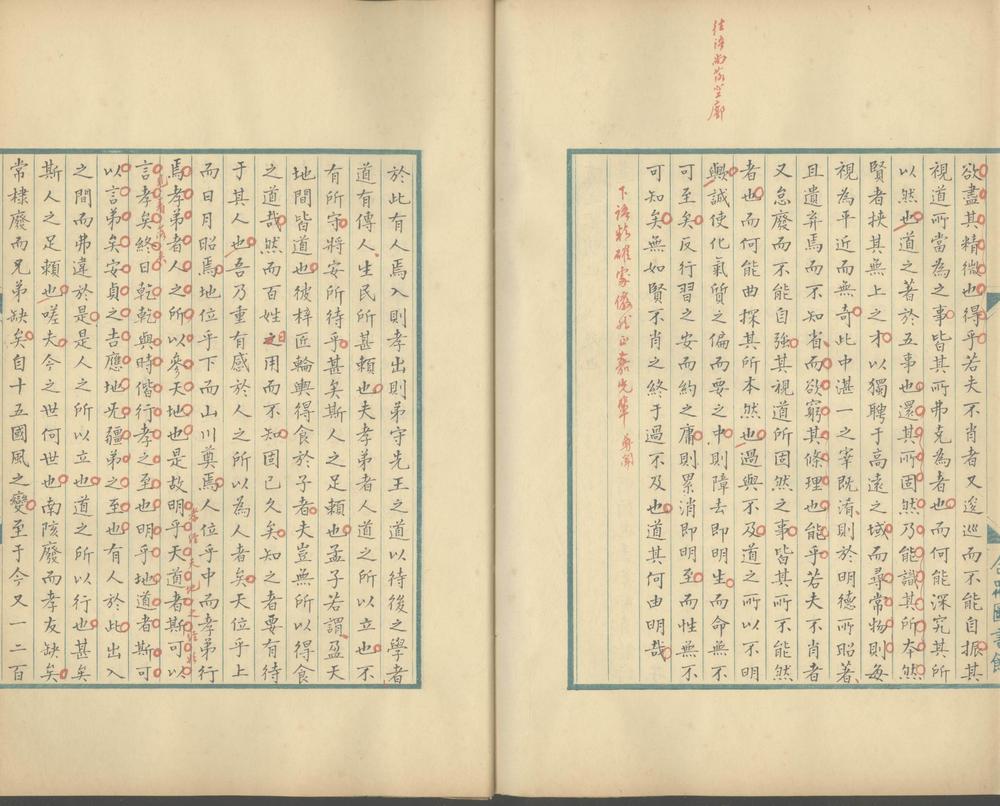 往語尚落空廓
欲盡其精微也得乎若夫不肖者又逡巡而不能自振其
視道所當為之事皆其所弗克為者也而何能深究其所
以然也道之著於五事也還其所固然乃能識其所本然
賢者挾其無上之才以獨騁于高遠之域而尋常物則每
視為平近而無奇此中湛一之宰既淆則於明德所昭著
且遺弃焉而不知省而欲窮其條理也能乎若夫不肖者
又怠廢而不能自強其視道所固然之事皆其所不能然
者也而何能曲探其所本然也過與不及道之所以不明
與誠使化氣質之偏而要之中則障去即明生而命無不
可至矣反行習之安而約之庸則累消即明至而性無不
可知矣無如賢不肖之終于過不及也道其何由明哉
下語精確
先輩
於此有人焉入則孝出則弟守先王之道以待後之學者
道有傳人生民所甚賴也夫孝弟者人道之所以立也不
有所守將安所待乎甚矣斯人之足賴也孟子若謂盈天
地間皆道也彼梓匠輪輿得食於子者夫豈無所以得食
之道哉然而百姓之用而不知固已久矣知之者要有待
于其人也吾乃重有感於人之所以為人者矣天位乎上
而日月昭焉地位乎下而山川奠焉人位乎中而孝弟行
焉孝弟者人之所以參天地也是故明乎天道者斯可以
言孝矣終日乾乾與時偕行孝之至也明乎地道者斯可
以言弟矣安貞之吉應地无疆弟之至也有人於此出入
之間而弗違於是是人之所以立也道之所以行也甚矣
斯人之足賴也嗟夫今之世何世也南陔廢而孝友缺矣
常棣廢而兄弟缺矣自十五國風之變至于今又一二百